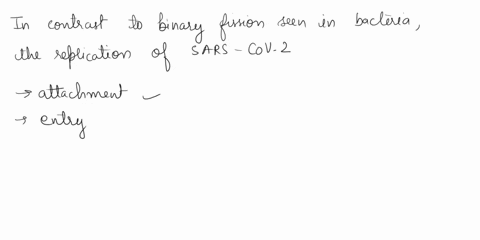 In contrast to binary fission seen in bacteria,
the replication of SARS-CoV-2
→ attachment ✓
→ entry